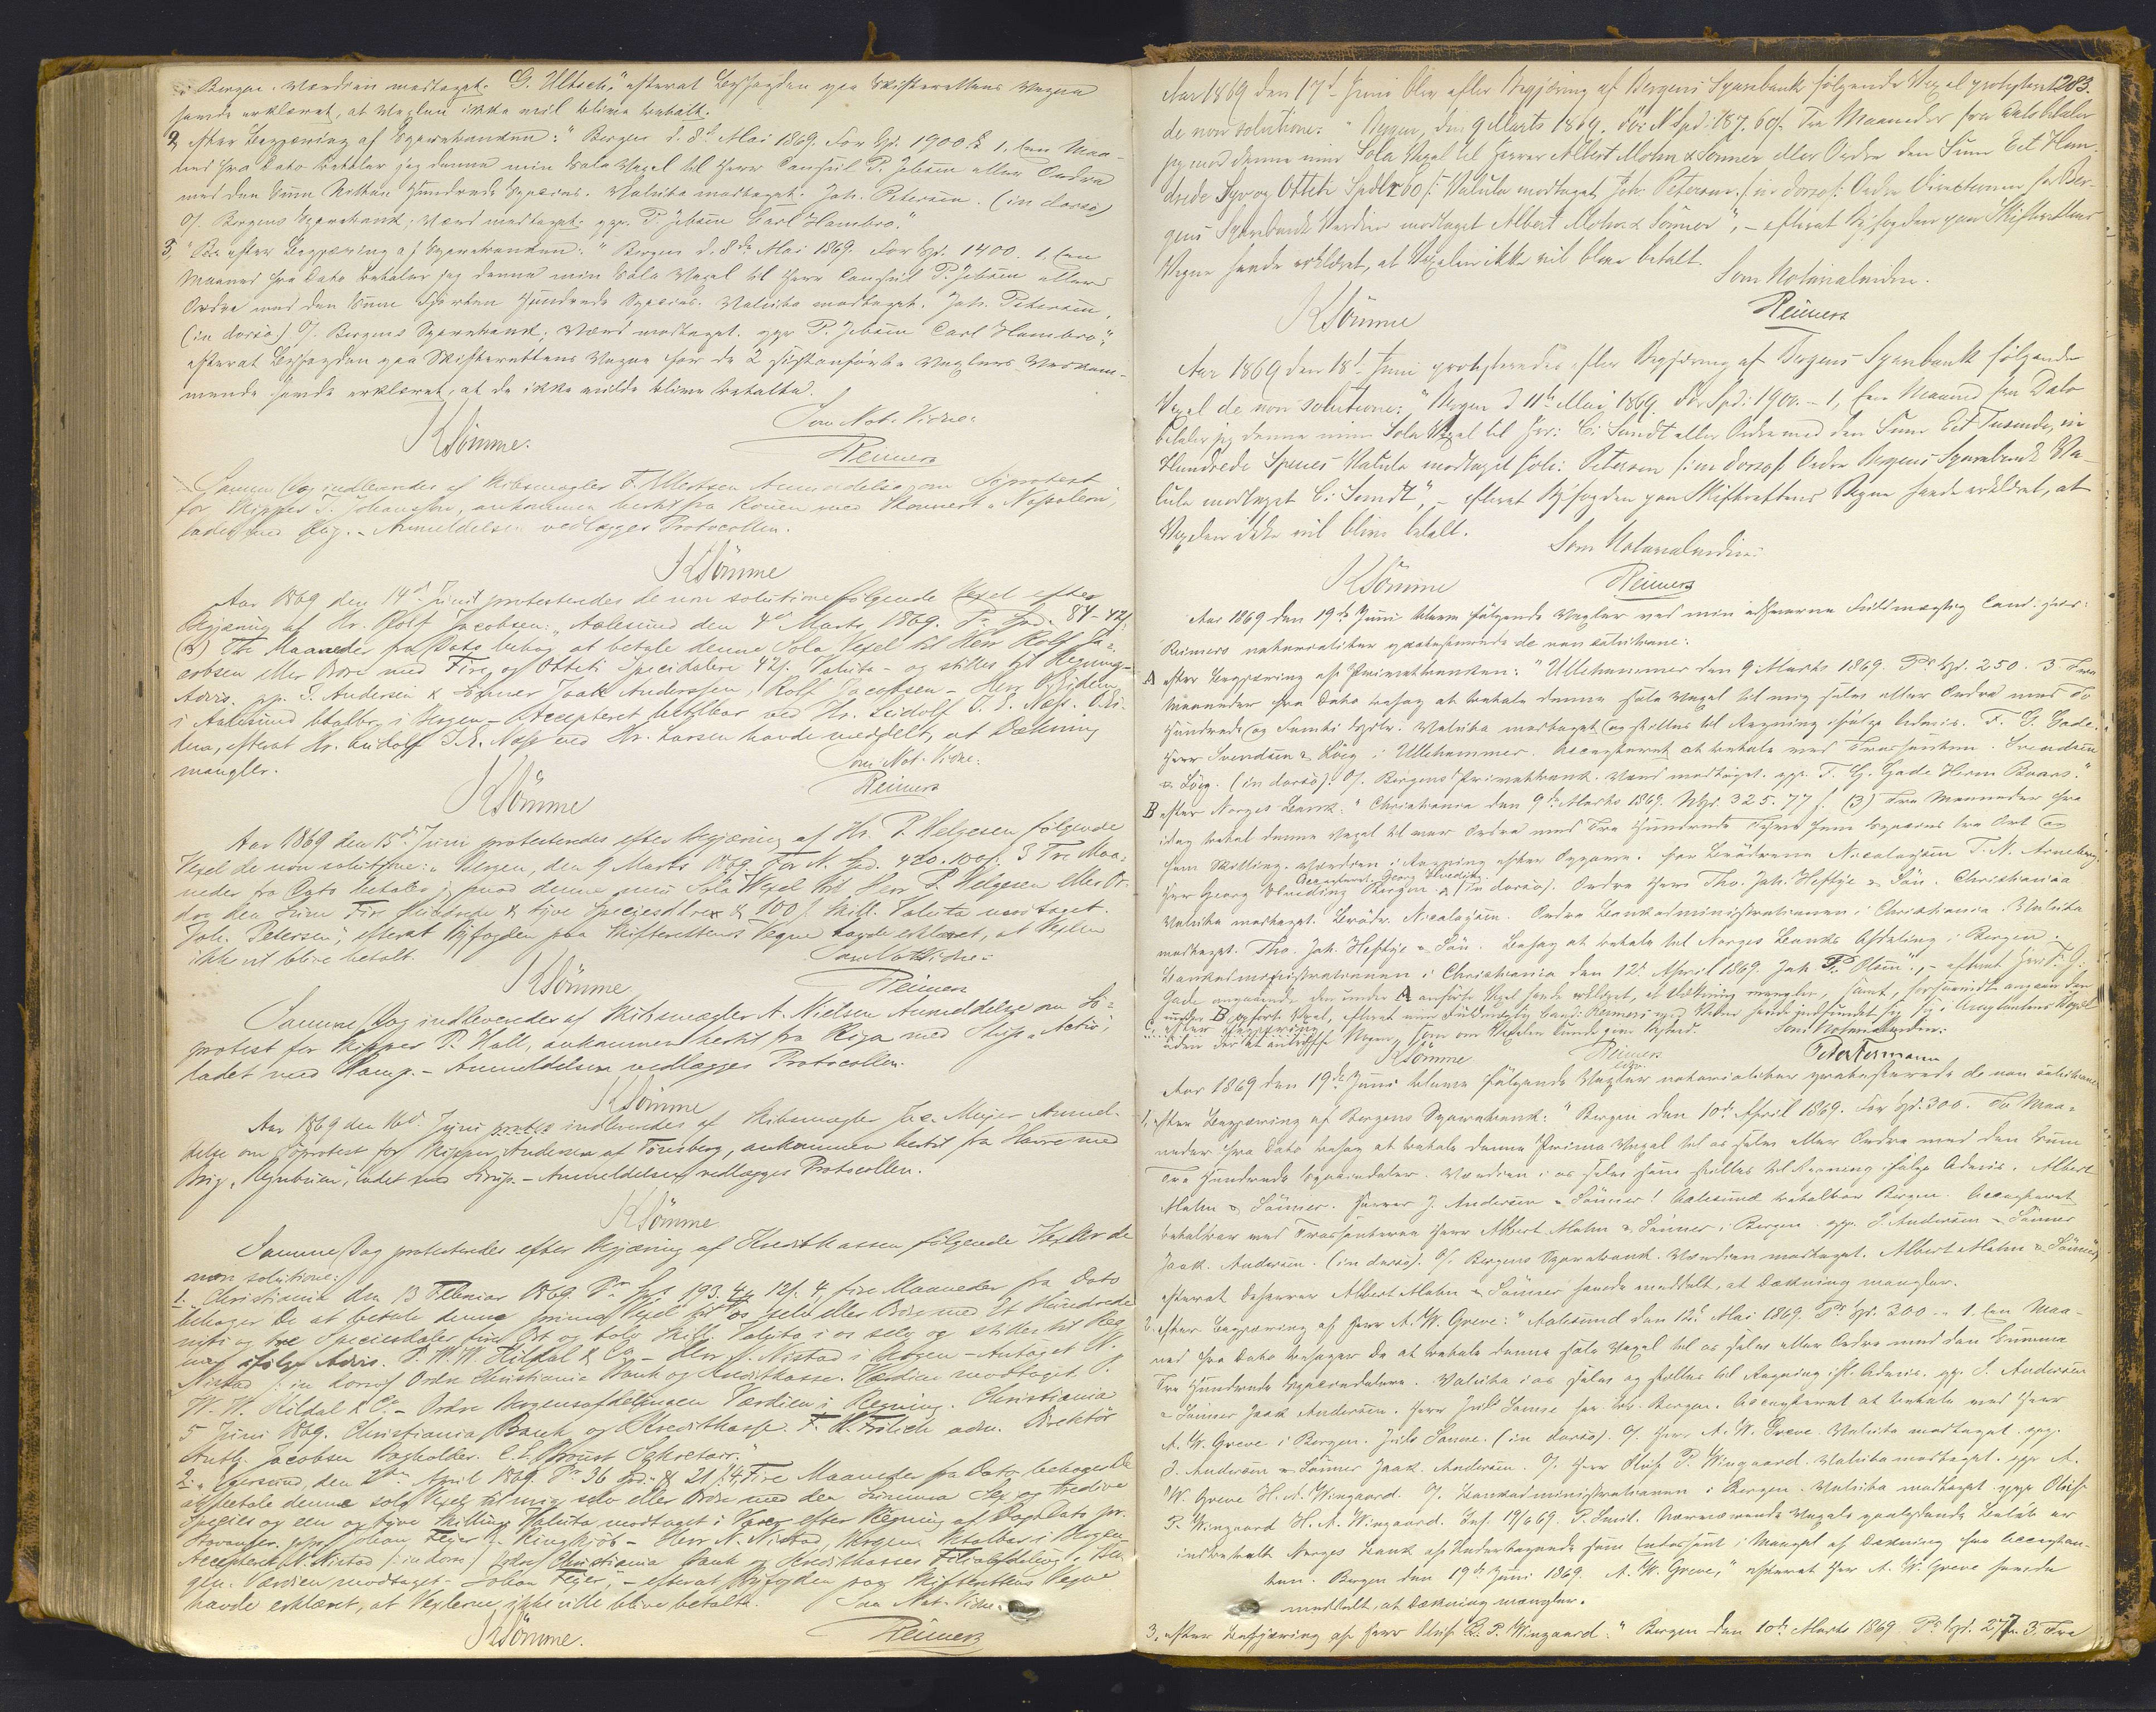 Bergen. Værdien modtaget. G. Ultsch", efterat Byfogden paa Skifterettens Vegne
havde erklæret, at Vexlen ikke vil blive betalt.
2, efter Begjæring af Sparebanken: "Bergen d. 8de Mai 1869. For Spd. 1900. 1, Een Maa-
ned fra Dato betaler jeg denne min Sola Vexel til Herr Consul P. Jebsen eller Ordre
med den Sum Nitten Hundrede Species. Valuta modtaget. Joh. Petersen. (in dorso)
O/ Bergens Sparebank; Værd. modtaget. ppr. P. Jebsen Carl Hambro".
3, efter Begjæring af Sparebanken: "Bergen d. 8de Mai 1869. For Spd. 1400. 1, Een
Maaned fra Dato betaler jeg denne min Sola Vexel til Herr Consul P. Jebsen eller
Ordre med den Sum Fjorten Hundrede Species. Valuta modtaget. Joh. Petersen.
(in dorso) O/. Bergens Sparebank; Værd. modtaget. ppr P. Jebsen Carl Hambro",
efterat Byfogden paa Skifterettens Vegne for de 2 sidstanførte Vexlers Vedkom-
mende havde erklæret, at de ikke vilde blive betalte.
KSömme. Som Not. Vidne:
Reimers
Samme Dag indleveredes af Skibsmægler F. Ellertsen Anmeldelse om Söprotest
for Skipper T. Johanssen, ankommen hertil fra Rouen med Skonnert "Napoleon",
ladet med . - Anmeldelsen vedlægges Protocollen.
KSömme
Aar 1869 den 14de Juni protesteredes de non solutione følgende Vexel efter
Begjæring af Hr. Rolf Jacobsen: "Aalesund den 4de Marts 1869. Pr. Spd. 84-42/.
(3) Tre Maaneder fra Dato behag at betale denne Sola Vexel til Herr Rolf Ja-
cobsen eller Ordre med Fire og Otteti Speciedalere 42/. Valuta - og stilles til Regning
Advis. pp. J. Andersen & Sönner Jaak Anderssen, Rolf Jacobsen - Herr
i Aalesund betalbar i Bergen - Accepteret betalbar ved Hr. Leidolf J. E. Næss.
, efterat Hr. Leidolf J. E. Næss ved Hr. Larsen havde meddelt, at Dækning
mangler. Som Not. Vidne:
KSömme Reimers
Aar 1869 den 15de Juni protesteredes efter Begjæring af Hr. P. Helgesen følgende
Vexel de non solutione: "Bergen, den 9 Marts 1869 For N. Spd. 420. 100/. 3 Tre Maa-
neder fra Dato betaler jeg mod denne min Sola Wexel til Herr P. Helgesen eller Or-
dre den Sum Fire Hundrede & tyve Speciesdlr & 100/ Skill. Valuta modtaget.
Joh. Petersen", efterat Byfogden paa Skifterettens Vegne havde erklæret, at Vexlen
ikke vil blive betalt. Som Not Vidne:
KSömme Reimers
Samme Dag indleveredes af Skibsmægler A. Nielsen Anmeldelse om Sö-
protest for Skipper P. Wall, ankommen hertil fra Riga med Skip "Activ",
ladet med Hamp. - Anmeldelsen vedlægges Protocollen.
KSömme
Aar 1869 den 16de Juni protes indleveredes af Skibsmægler Jac. Meyer Anmel-
delse om Söprotest for Skipper Andersen af Tönsberg, ankommen hertil fra Havre med
Brig "", ladet med Sirup. - Anmeldelsen vedlægges Protocollen.
KSömme
Samme Dag protesteredes efter Begjæring af Kreditkassen følgende Vexler de
non solutione:
1. "Christiania den 13 Februar 1869. Pr. Spd. 193. 4 12/. 4, fire Maaneder fra Dato
behager De at betale denne prima Vexel til os selv eller Ordre med Et Hundrede
niti og tre Speciesdaler fire Ort og tolv Skill. Valuta i os selv og stilles til Reg-
ning ifølge Advis. P. W. W. Kildal & Co - Herr N. Nistad i Bergen - Antaget N.
Nistad /: in dorso/ Ordre Christiania Bank og Kreditkasse. Værdien modtaget. P.
W. W. Kildal & Co. - Ordre Bergensafdelingen Værdien i Regning. Christiania
5 Juni 1869. Christiania Bank og Kreditkasse. F. H. Frölich adm. Direktör
Anth. Jacobsen Bogholder. C. E. Sekretair."
2. "Egersund, den 2den April 1869. Pr 36 Spd. & 21/. 4, Fire Maaneder fra Dato behager De
at betale denne sola Vexel til mig selv eller Ordre med den Summa Sex og tredive
Species og een og tyve Skilling Valuta modtaget i Varer efter Regning af Dags Dato pr.
Stavanger. ppr. Johan Feyer - Herr N. Nistad, Bergen. betalbar i Bergen
Accepteret N. Nistad /: in dorso / Ordre Christiania Bank og Kreditkasses Filialafdeling i Ber-
gen. Værdien modtaget - Johan Feyer", - efterat Byfogden paa Skifterettens Vegne
havde erklæret, at Vexlerne ikke ville blive betalte. Som Not. Vidne:
KSömme. Reimers
283.
Aar 1869 den 17de Juni blev efter Begjæring af Bergens Sparebank følgende Vexel protesteret
de non solutione: "Bergen, den 9 Marts 1869. For N Spd: 187. 60/. Tre Maaneder fra Dato betaler
jeg mod denne min Sola Vexel til Herrer Albert Mohn & Sönner eller Ordre den Sum Eet Hun-
drede Syv og Otteti Spdlr 60/: Valuta modtaget, Joh: Petersen, /in dorso/: Ordre Directionen for Ber-
gens Sparebank Værdien modtaget Albert Mohn & Sönner", - efterat Byfogden paa Skifterettens
Vegne havde erklæret, at Vexelen ikke vil blive betalt.
Som Notarialvidne.
KSömme Reimers
Aar 1869 den 18de Juni protesteredes efter Begjæring af Bergens Sparebank følgende
Vexel de non solutione: "Bergen d 11te Mai 1869. For Spd: 1900. - 1, Een Maaned fra Dato
betaler jeg denne min Sola Vexel til Hr: C: Sundt eller Ordre med den Sum Eet Tusende, ni
Hundrede Species Valuta modtaget Joh: Petersen /: in dorso/: Ordre Bergens Sparebank Va-
luta modtaget C: Sundt", - efterat Byfogden paa Skifterettens Vegne havde erklæret, at
Vexlen ikke vil blive betalt. Som Notarialvidne:
KSömme Reimers
Aar 1869 den 19de Juni bleve følgende Vexler ved min edsvorne Fuldmægtig Cand. jur:
Reimers notarialiter protesterede de non solutione:
A efter Begjæring af Privatbanken: "Lillehammer den 9 Marts 1869. Pr Spd. 250. 3. Tre
Maaneder fra Dato behag at betale denne sola Vexel til mig selv eller Ordre med To
Hundrede og Femti Spdlr. Valuta modtaget og stilles til Regning ifølge Advis. F. G. Gade.
Herr Svendsen & Lög i Lillehammer. Accepteret at betale ved Trassenten. Svendsen
& Lög. (in dorso) O/. Bergens Privatbank. Værd. modtaget. ppr. F. G. Gade Herm Baars."
B efter Norges Bank. "Christiania den 9de Marts 1869. Nspd. 325. 77 /. (3) Tre Maaneder fra
idag betal denne Vexel til vor Ordre med Tre Hundrede Tyve Fem Species tre Ort og
fem Skilling. Værdien i Regning efter Opgave. for Brödrene Nicolaysen T. N. Arneberg.
Accepteret. Georg Herding
Herr Georg Herding Bergen. (In dorso). Ordre Herr Tho. Joh. Heftye & Sön. Christiania
Valuta modtaget. Brödr. Nicolaysen. Ordre Bankadministrationen i Christiania. Valuta
modtaget. Tho. Joh. Heftye & Sön. Behag at betale til Norges Banks Afdeling i Bergen.
Bankadministrationen i Christiania den 12te April 1869. Joh. P. Olsen", - efterat Herr F. G.
Gade angaaende den under A anførte Vexel havde erklæret, at Dækning mangler, samt, forsaavidt angaar den
under B anførte Vexel, efterat min Fuldmægtig Cand: Reimers med Vidne havde indfundet sig i Acceptantens Bopæl
C. efter Begjæring
uden der at antræffe Nogen, som om Vexelen kunde give Besked. Som Notarialvidner:
KSömme Reimers Peter Termann
Aar 1869 den 19de Juni bleve følgende Vexler notarialiter protesterede de non solutione
1, efter Begjæring af Bergens Sparebank: "Bergen den 10de April 1869. For Spd. 300. To Maa-
neder fra Dato behag at betale denne Prima Vexel til os selv eller Ordre med den Sum
Tre Hundrede Speciedaler. Værdien i os selv som stilles til Regning ifølge Advis. Albert
Mohn & Sönner. Herrer J. Andersen & Sönner! Aalesund betalbar Bergen. Accepteret
betalbar ved Trassenterne Herr Albert Mohn & Sönner i Bergen. ppr. J. Andersen & Sönner
Jaak. Andersen. (in dorso). O/. Bergens Sparebank. Værdien modtaget. Albert Mohn & Sönner",
efterat Dehrrer Albert Mohn & Sönner havde meddelt, at Dækning mangler.
2. efter Begjæring af Herr A. W. Greve: "Aalesund den 12te Mai 1869. Pr Spd. 300 - 1. Een Maa-
ned fra Dato behager De at betale denne sola Vexel til os selv eller Ordre med den Summa
Tre Hundrede Speciedalere. Valuta i os selv og stilles til Regning ifl. Advis. pp. J. Andersen
& Sönner Jaak Andersen. Herr Juls Sanne Bergen. Accepteret at betale ved Herr
A. W. Greve i Bergen. Juls Sanne. (in dorso). O/. Herr A. W. Greve. Valuta modtaget. ppr.
J. Andersen & Sönner Jaak. Andersen. O/. Herr Oluf P. Wingaard. Valuta modtaget. ppr A.
W. Greve H. A. Wingaard. O/. Bankadministrationen i Bergen. Valuta modtaget ppr Oluf
P. Wingaard H. A. Wingaard. Inf. 19/6 69. P. Smit. Nærværende Vexels paalydende Belöb er
indbetalt Norges Bank af Undertegnede som Endossent i Mangel af Dækning fra Acceptan-
ten. Bergen den 19de Juni 1869. A. W. Greve," efterat Herr A. W. Greve havde
meddelt, at Dækning mangler.
3, efter Begjæring af Herr Oluf P. Wingaard. "Bergen den 10de Marts 1869 Pr Spd. 277. 3. Tre